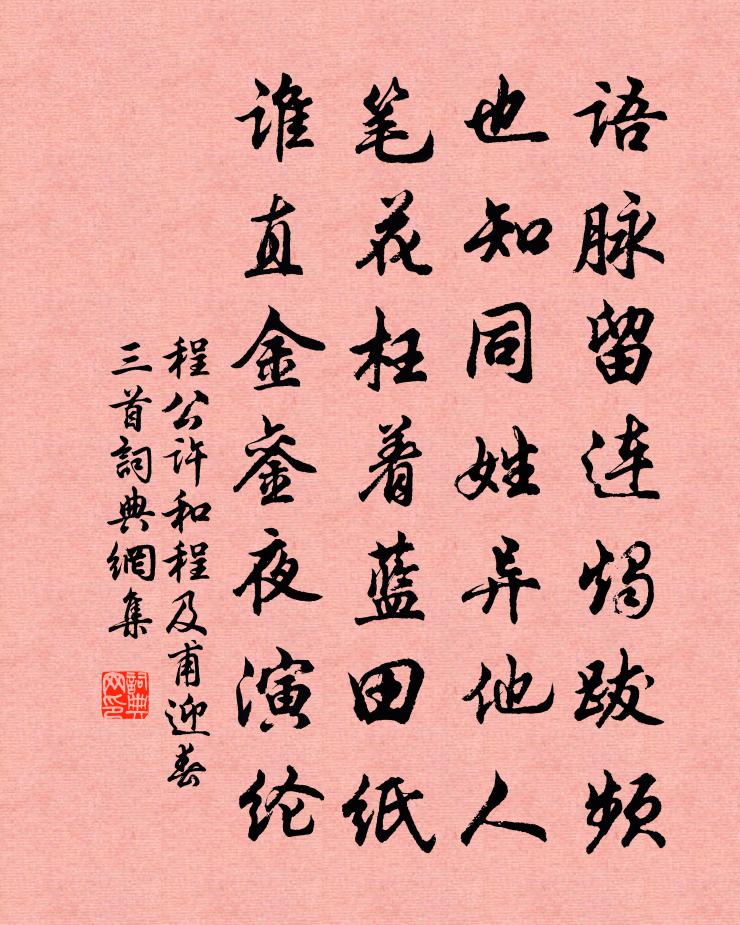 语脉留连烛跋频
也知同姓异他人
笔花枉着蓝田纸
谁直金銮夜演纶
程公许和程及甫迎春
三首詞典網集
詞典網印